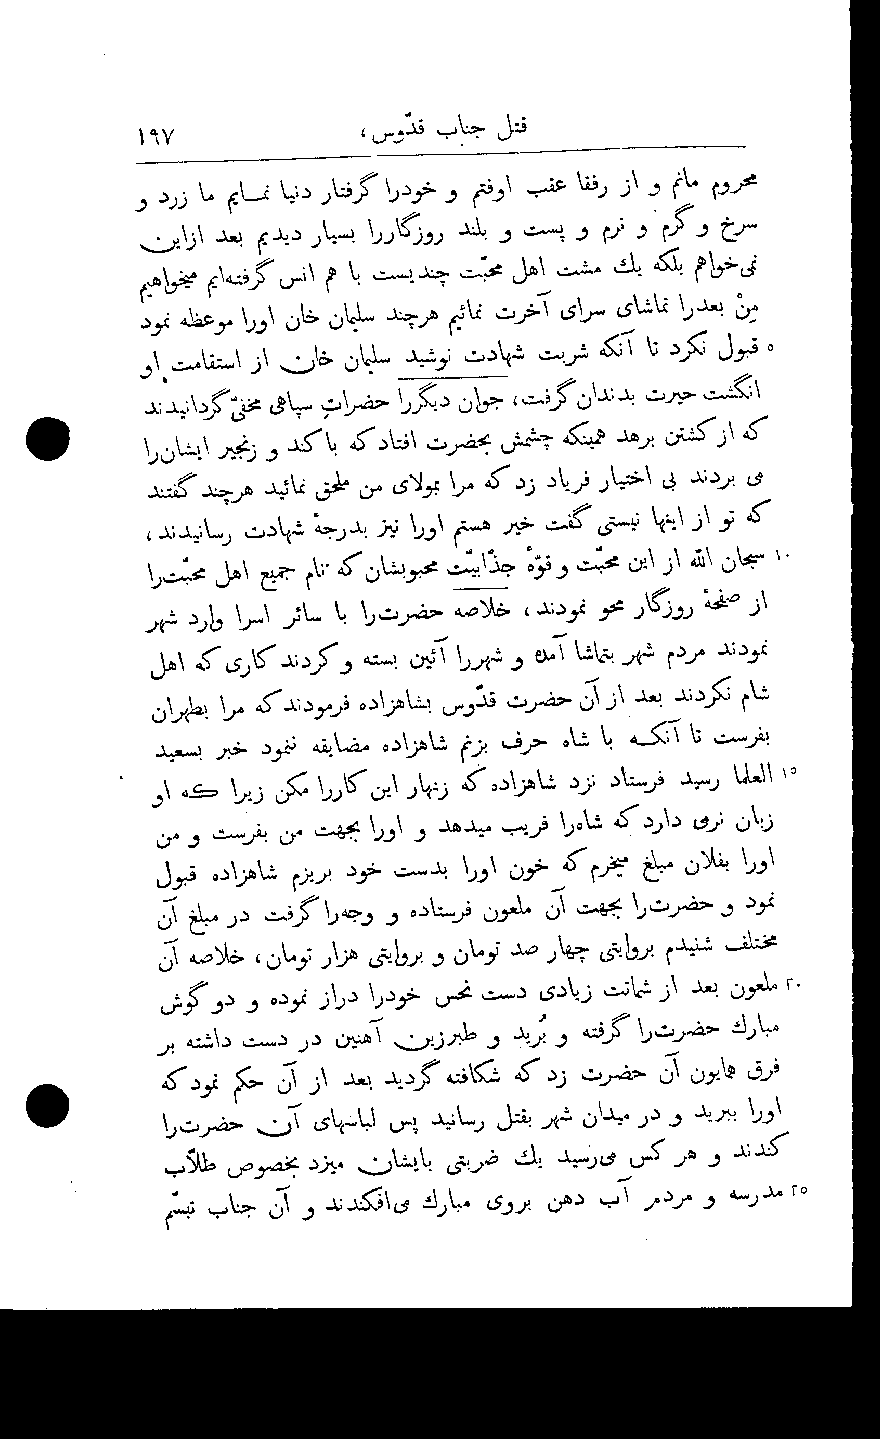 قتل جناب قدّوس، ۱۹۷
محروم مانم و از رفقا عقب اوفتم و خودرا گرفتار دنیا نمـایم ما زرد و
سرخ و گرم و نرم و پست و بلند روزگاررا بسیار دیدیم بعد ازاین
نمی‌خواهم بلکه یك مشت اهل محبّت چندیست با هم انس گرفته‌ایم میخواهیم
مِنْ بعدرا تماشای سرای آخرت نمائیم هرچند سلیمان خان اورا موعظه نمود
۵ قبول نکرد تا آنکه شربت شهادت نوشید سلیمان خان از استقامت او
انگشت حیرت بدندان گرفت، جوان دیگررا حضراتِ سپاهی مخفیّ گردانیدند
که از کشتن برهد همینکه چشمش بحضرت افتاد که با کند و زنجیر ایشان‌را
می بردند بی اختیار فریاد زد که مرا بمولای من ملحق نمائید هرچند گفتند
که تو از اینها نیستی گفت خیر هستم اورا نیز بدرجهٔ شهادت رسانیدند،
۱۰ سبحان الله از این محبّت و قوّهٔ جذّابیّت محبوبشان که نام جمیع اهل محبّت‌را
از صفحهٔ روزگار محو نمودند، خلاصه حضرت‌را با سائر اسرا وارد شهر
نمودند مردم شهر بتماشا آمده و شهررا آئین بسته و کردند کاری که اهل
شام نکردند بعد از آن حضرت قدّوس بشاهزاده فرمودند که مرا بطهران
بفرست تا آنکـه با شاه حرف بزنم شاهزاده مضایقه ننمود خبر بسعید
۱۵ العلما رسید فرستاد نزد شاهزاده که زنهار این کاررا مکن زیرا کـه او
زبان نرمی دارد که شاه‌را فریب میدهد و اورا بجهت من بفرست و من
اورا بفلان مبلغ میخرم که خون اورا بدست خود بریزم شاهزاده قبول
نمود و حضرت‌را بجهت آن ملعون فرستاده و وجه‌را گرفت در مبلغ آن
مختلف شنیدم بروایتی چهار صد تومان و بروایتی هزار تومان، خلاصه آن
۲۰ ملعون بعد از شماتت زیادی دست نحس خودرا دراز نموده و دو گوش
مبارك حضرت‌را گرفته و بُرید و طبرزین آهنین در دست داشته بر
فرق همایون آن حضرت زد که شکافته گردید بعد از آن حکم نمود که
اورا ببرید و در میدان شهر بقتل رسانید پس لباسهای آن حضرت‌را
کندند و هر کس می‌رسید یك ضربتی بایشان میزد بخصوص طلّاب
۲۵ مدرسه و مردم آب دهن بروی مبارك می‌افکندند و آن جناب تبسّم